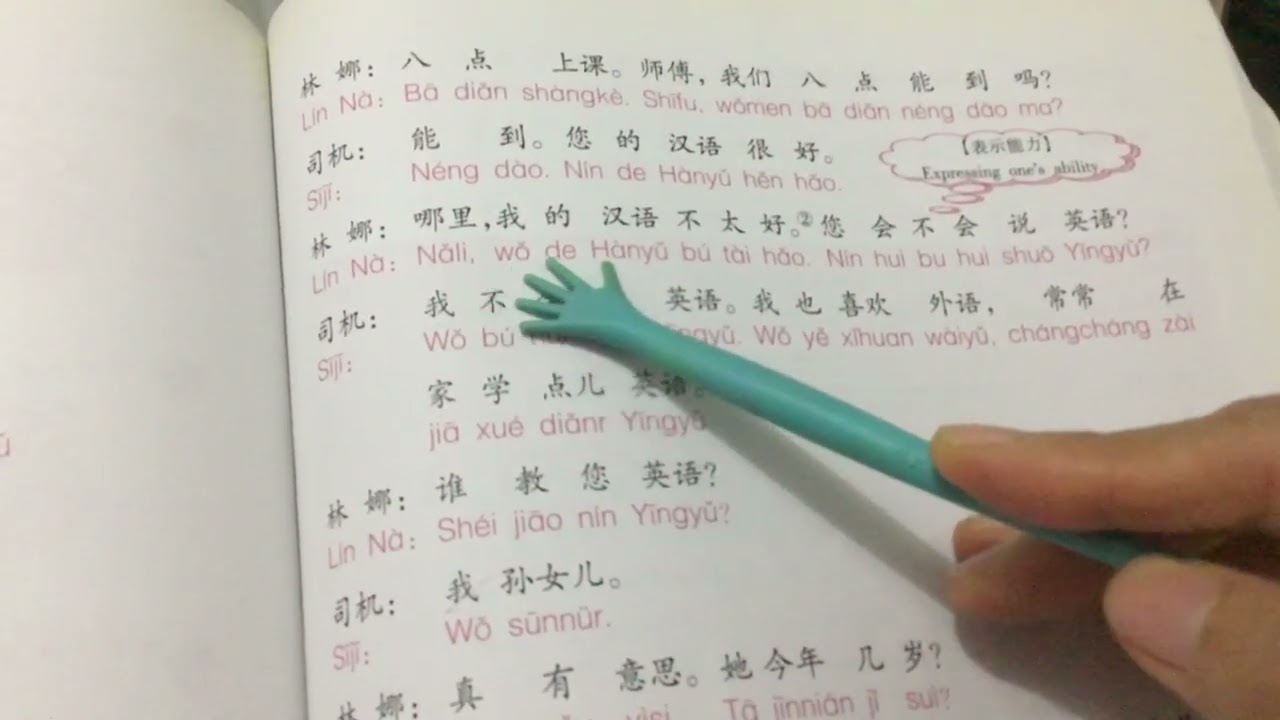 林娜：八点上课。师傅，我们八点能到吗？
Lín Nà: Bā diǎn shàngkè. Shīfu, wǒmen bā diǎn néng dào ma?
司机：能到。您的汉语很好。
Sījī: Néng dào. Nín de Hànyǔ hěn hǎo.
【表示能力】
Expressing one's ability
林娜：哪里，我的汉语不太好。②您会不会说英语？
Lín Nà: Nǎli, wǒ de Hànyǔ bú tài hǎo. Nín huì bu huì shuō Yīngyǔ?
司机：我不 英语。我也喜欢外语，常常在
Sījī: Wǒ bú Yīngyǔ. Wǒ yě xǐhuan wàiyǔ, chángcháng zài
家学点儿英语。
jiā xué diǎnr Yīngyǔ
林娜：谁教您英语？
Lín Nà: Shéi jiāo nín Yīngyǔ?
司机：我孙女儿。
Sījī: Wǒ sūnnǚr.
林娜：真有意思。她今年几岁？
yìsi. Tā jīnnián jǐ suì?